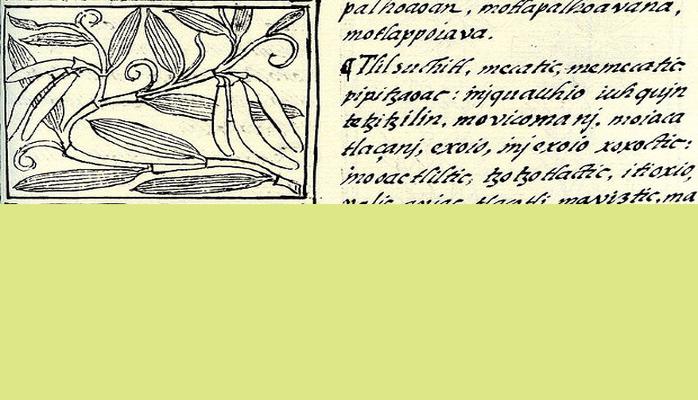 palhoaoan, motlapalhoavana,
motlappoiava.
¶ Tlilsuchitl, mecatic, memecatic
pipitzaoac: injquauhio iuhqujn
tetzitzilin, movicomanj, moiaca
tlaçanj, exoio, inj exoio xoxoctic:
inooac tliltic, tzotzotlactic,
maviztic, ma